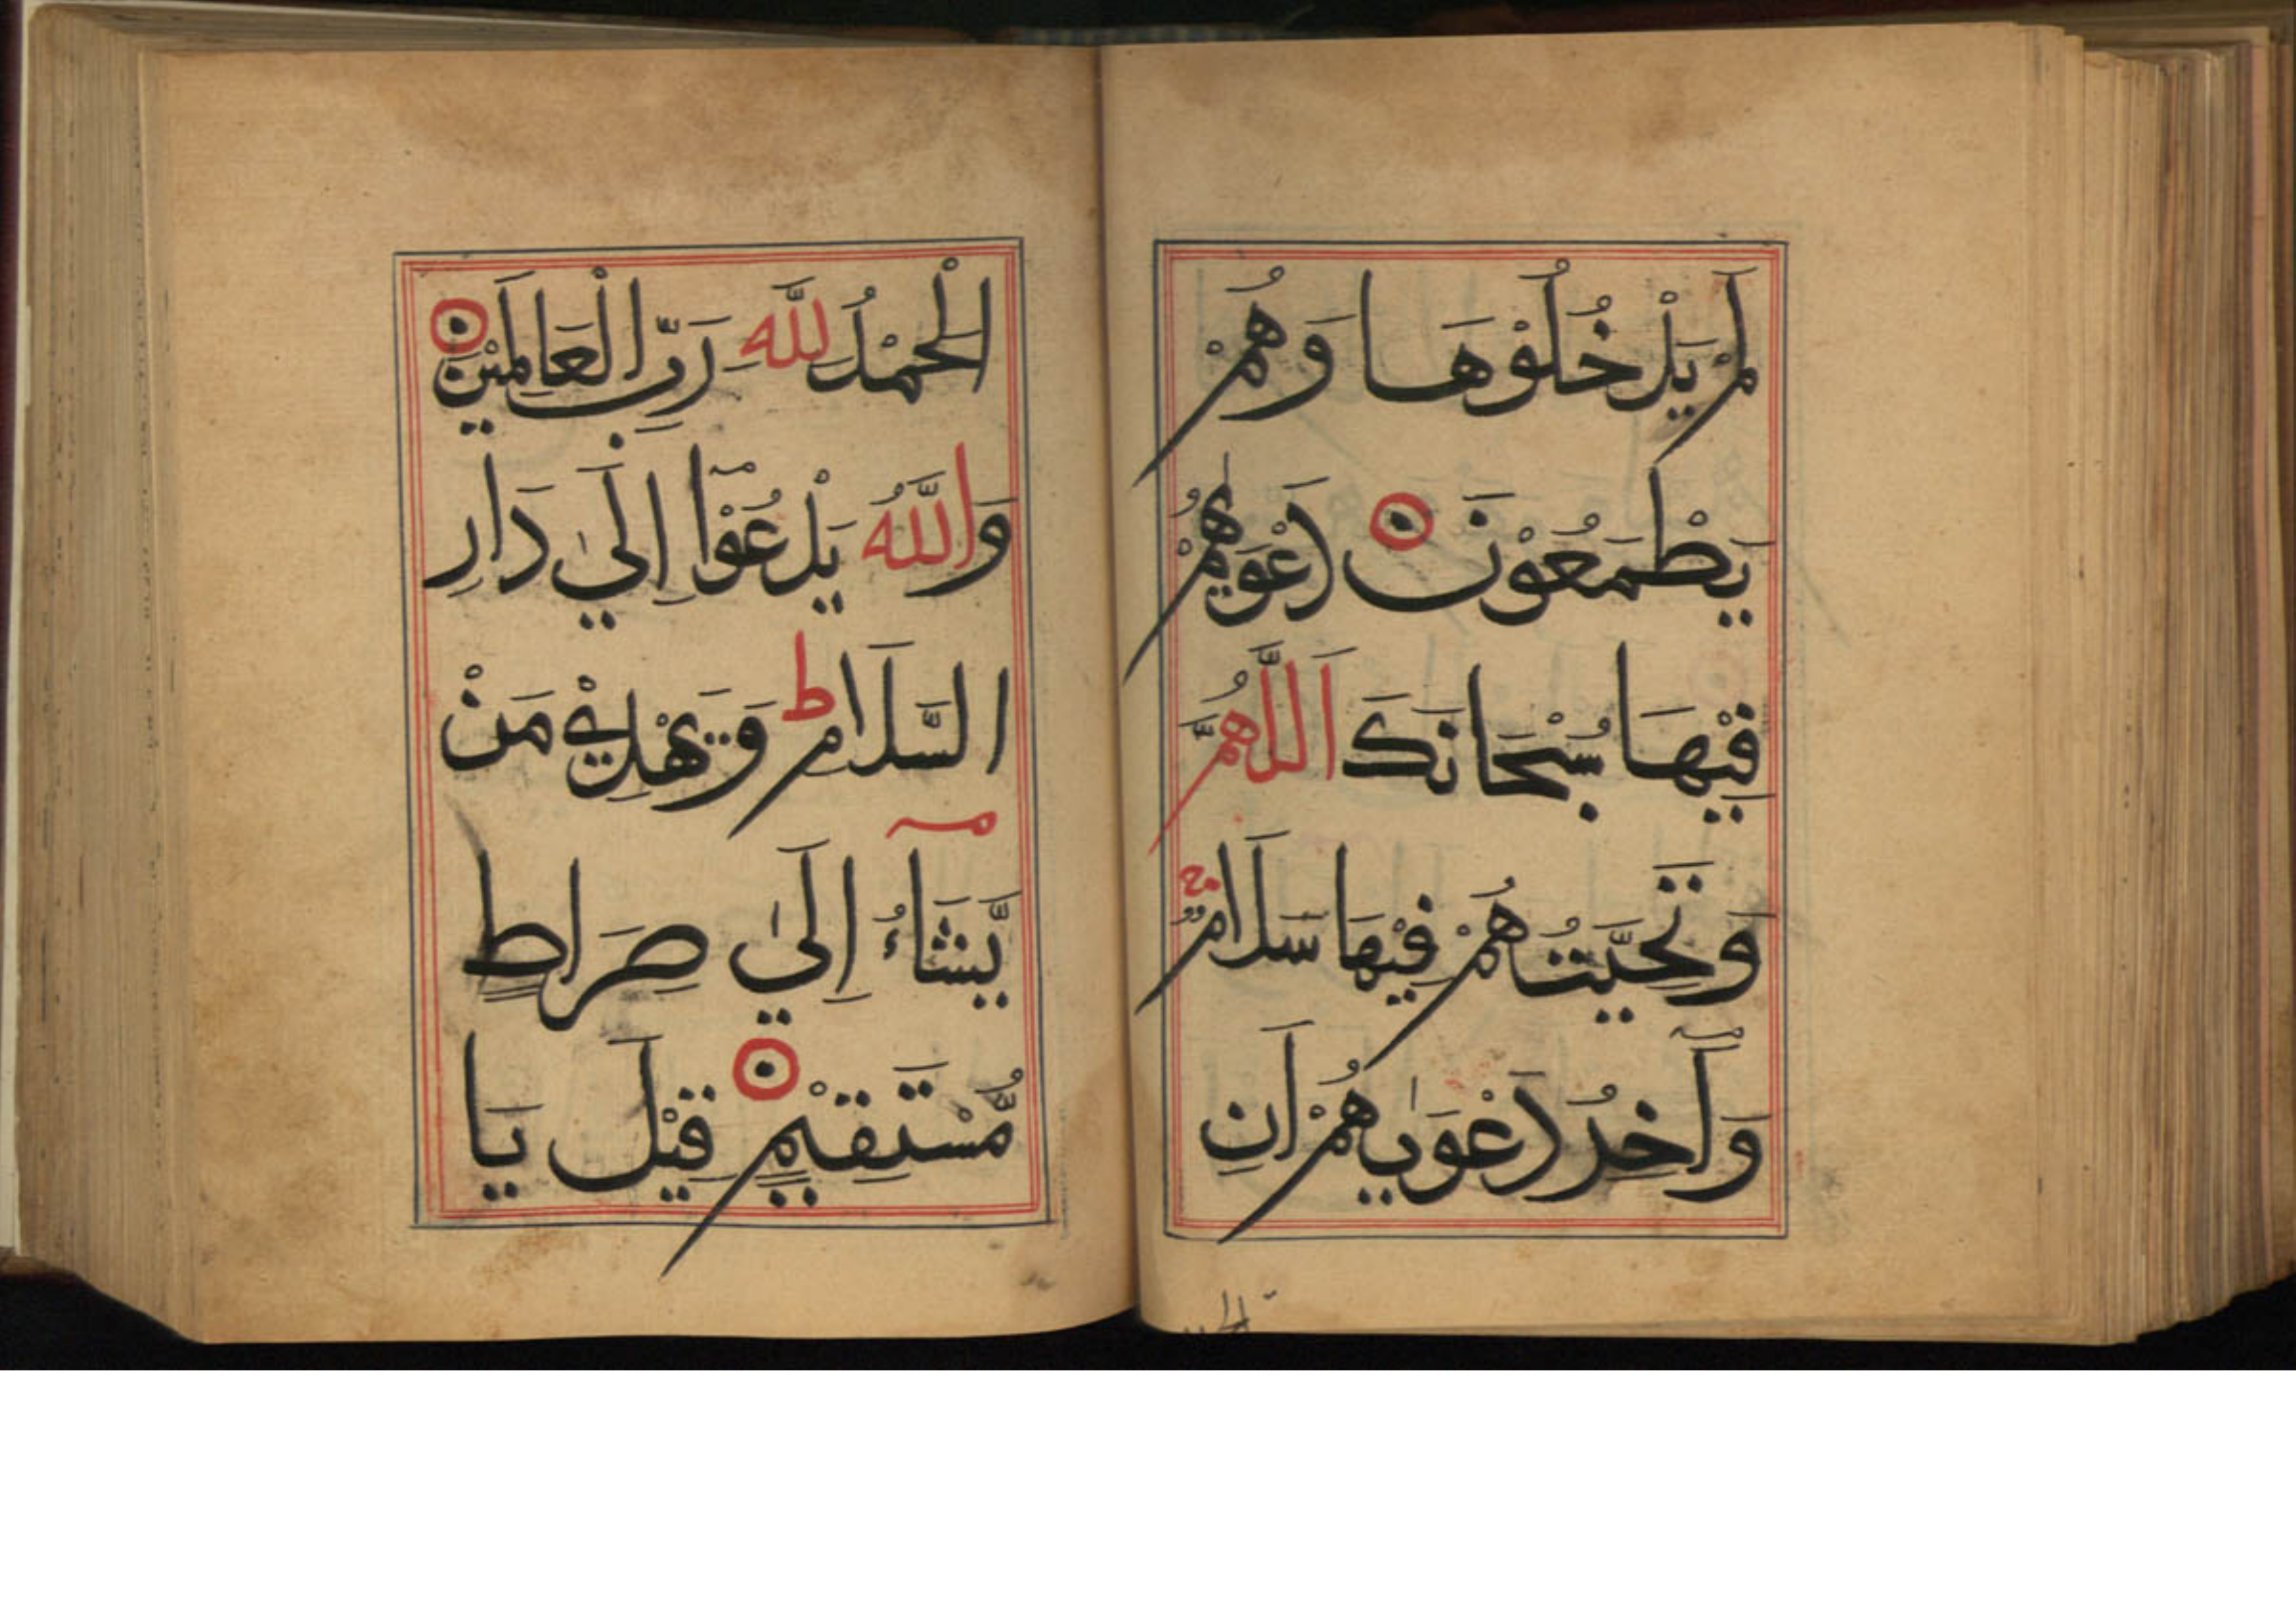 لَمْ يَدْخُلُوْهَا وَهُمْ
يَطْمَعُوْنَ دَعْوٰيهُمْ
فِيْهَا سُبْحَانَكَ اَللّٰهُمَّ
وَتَحِيَّتُهُمْ فِيْهَا سَلَامٌ ج
وَآخِرُ دَعْوٰيهُمْ اَنِ
الْحَمْدُ لِلّٰهِ رَبِّ الْعَالَمِيْنَ
وَاللّٰهُ يَدْعُوْٓا اِلَي دَارِ
السَّلَامِ ط وَيَهْدِيْ مَنْ
يَّشَآءُ اِلَيٰ صِرَاطٍ
مُّسْتَقِيْمٍ قِيْلَ يَا